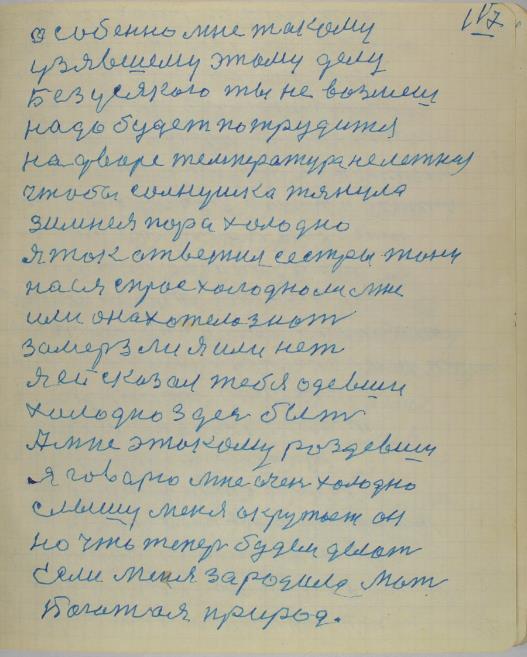 117
особенно мне такому
узявшему этому делу
Без усякого ты не возмеш
надо будет потрудится
на дворе температура не летняя
чтобы солнушка тянула
зимнея пора холодно
я ток ответил сестры тони
на ея спрос холодно ли мне
или она хотела знат
замерз ли я или нет
я ей сказал тебя одевши
холодно здес быт
А мне этокому роздевши
я говарю мне очен холодно
слышу меня окружает он
но что тепер будем делат
Если меня зародила мат
Богатая природ.